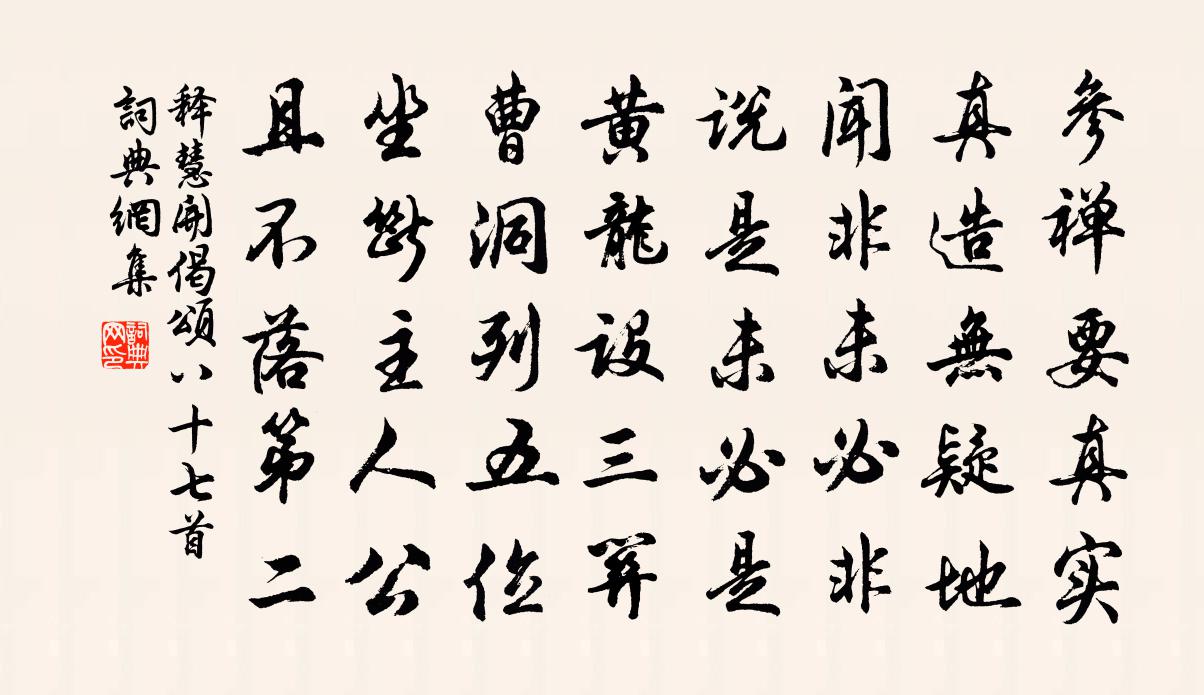 參禅要真实
真造無疑地
闻非未必非
说是未必是
黄龍设三関
曹洞列五位
坐斷主人公
且不落第二
释慧開偈頌八十七首
詞典網集
詞典网印